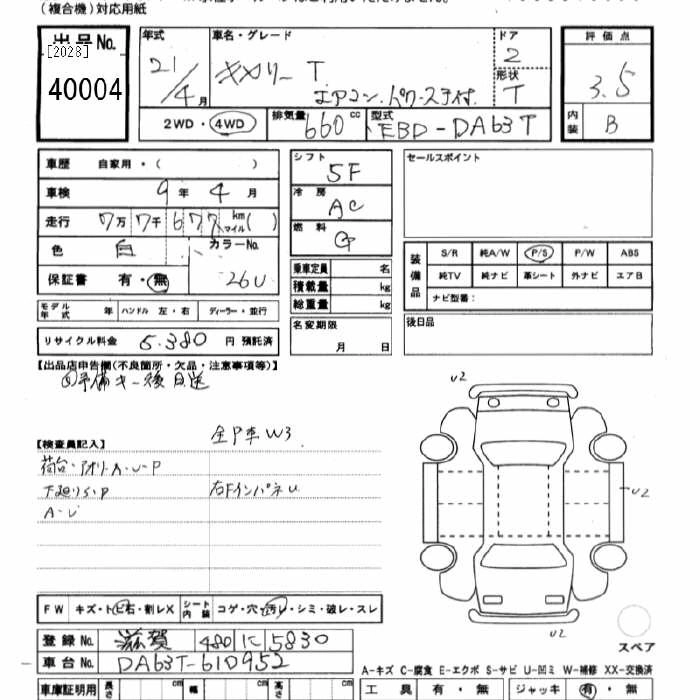 (複合機)対応用紙
出品No.
[2023]
40004
年式 車名・グレード ドア
21/4月 キャリー T 2
エアコン、パワステ付 形状 T
2WD・4WD 排気量 660 cc 型式 EBD-DA63T
評価点
3.5
内装 B
車歴 自家用・( )
車検 9年 4月
走行 7万 7千 677 km マイル( )
色 白 カラーNo.
保証書 有・無 26U
モデル年式 年 ハンドル 左・右 ディーラー・並行
リサイクル料金 5.380 円 預託済
シフト 5F
冷房 AC
燃料 G
乗車定員 名
積載量 kg
総重量 kg
名変期限
月 日
セールスポイント
装備品 S/R 純A/W P/S P/W ABS
純TV 純ナビ 革シート 外ナビ エアB
ナビ型番:
後日品
【出品店申告欄(不良箇所・欠品・注意事項等)】
予備キー後日送
全P車W3
【検査員記入】
荷台・アオリ・A・U・P
下廻りS・P 右Fインパネ U
A・U
U2
U2
U2
FW キズ・トビ石・割レX シート内装 コゲ・穴・汚レ・シミ・破レ・スレ
登録No. 滋賀 480 に 5830
車台No. DA63T-610952
スペア
A-キズ C-腐食 E-エクボ S-サビ U-凹ミ W-補修 XX-交換済
車庫証明用 長さ cm 幅 cm 高さ cm
工具 有・無 ジャッキ 有・無